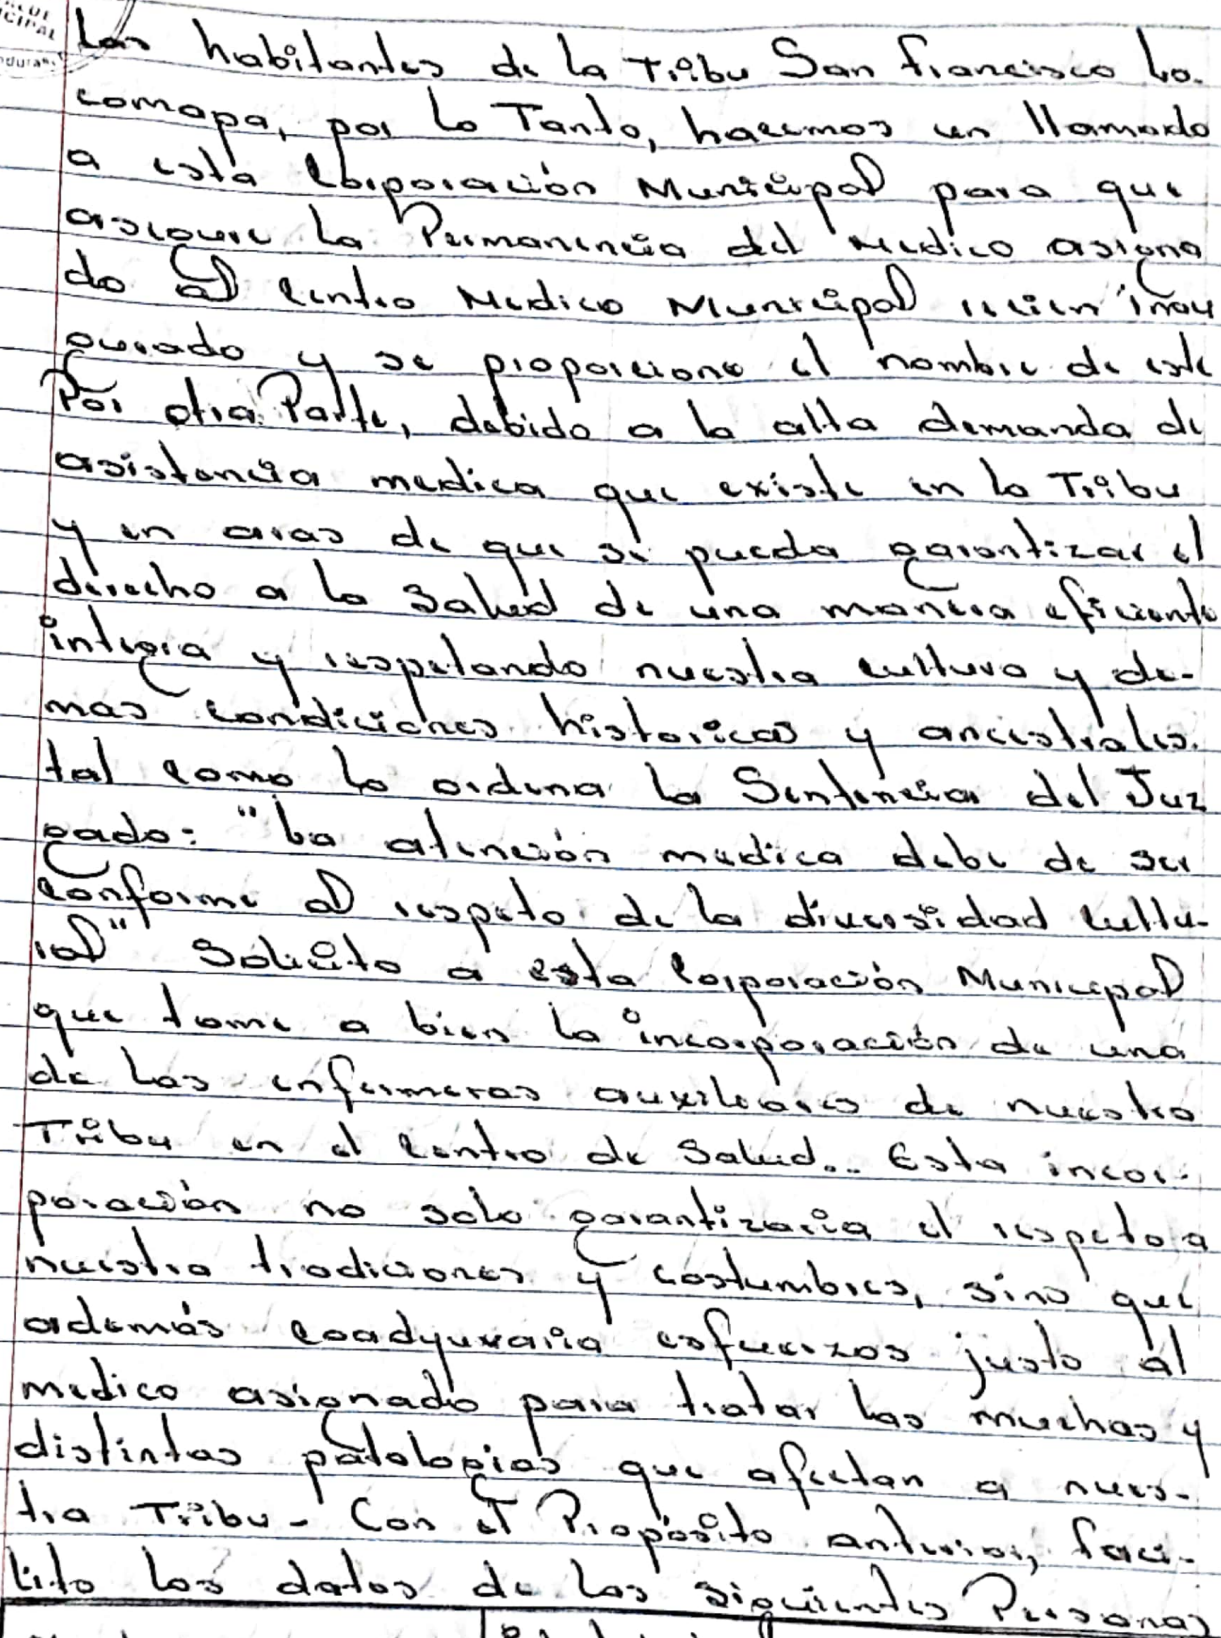 Los habitantes de la Tribu San francisco Lo-
comapa, por lo Tanto, hacemos un llamado
a esta Corporación Municipal para que
asegure la Permanencia del Medico asigna
do al Centro Medico Municipal recien inau
gurado y se proporcione el nombre de este
Por otra Parte, debido a la alta demanda de
asistencia medica que existe en la Tribu
y en aras de que se pueda garantizar el
derecho a la salud de una manera eficiente
integra y respetando nuestra cultura y de-
mas condiciones historicas y ancestrales.
tal como lo ordena la Sentencia del Juz
gado: "La atención medica debe de ser
conforme al respeto de la diversidad cultu-
ral" Solicito a esta Corporación Municipal
que tome a bien la incorporación de una
de las enfermeras auxiliares de nuestra
Tribu en el Centro de Salud.. Esta incor-
poración no solo garantizaria el respeto a
nuestra tradiciones y costumbres, sino que
además coadyuvaria esfuerzos justo al
medico asignado para tratar las muchas y
distintas patologias que afectan a nues-
tra Tribu - Con el Proposito anterior, faci-
lito los datos de las siguientes Personas